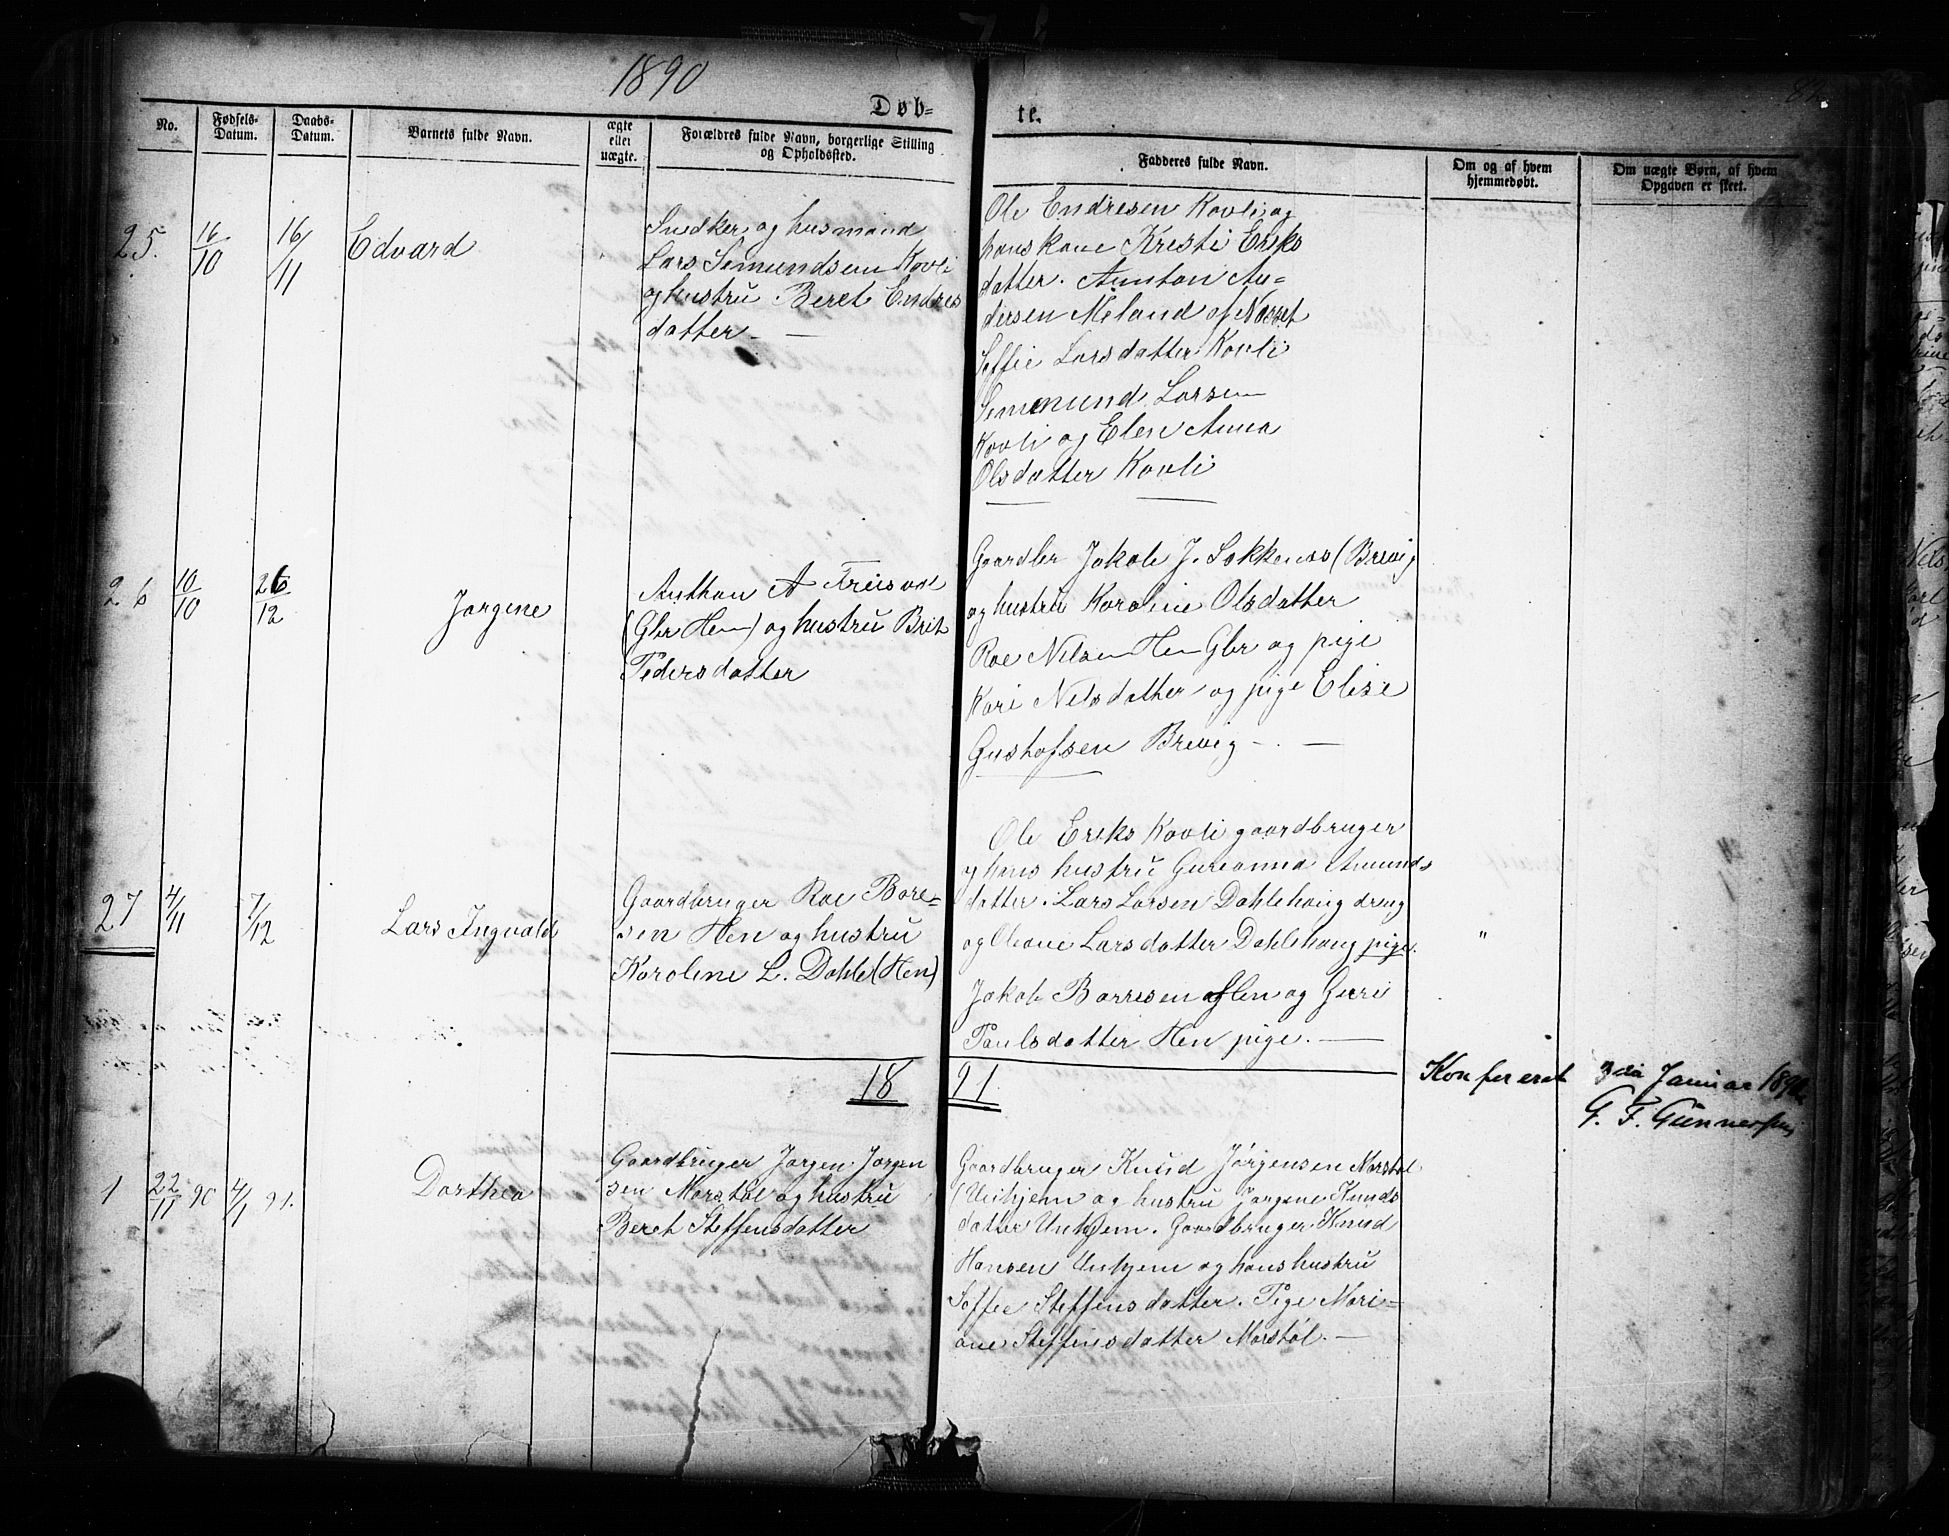 1890
Døb=
te.
No.
Fødsels-
Datum.
Daabs-
Datum.
Barnets fulde Navn.
ægte
eller
uægte.
Forældres fulde Navn, borgerlige Stilling
og Opholdssted.
Fadderes fulde Navn.
Om og af hvem
hjemmedøbt.
Om uægte Børn, af hvem
Opgaven er skeet.
25. 16/10 16/11 Edvard
Snedker og husmand
Lars Semundsen Kovli
og hustru Beret Endres
datter. —
Ole Endresen Kovli og
hans kone Kresti Eriks
datter. Annton An=
dersen Meland af Nesset
Soffie Larsdatter Kovli
Semmund Larsen
Kovli og Elen Anna
Olsdatter Kovli
26 10/10 26/12 Jorgene
Anthon A
(Gbr Hen) og hustru Brit
Pedersdatter
Gaardbr Jakob J. (Brevig
og hustru Karoline Olsdatter
Roe Nilsen Hen Gbr og pige
Kari Nelsdatter og pige Elise
Gustofsen Brevig — . —
27 4/11 7/12 Lars Ingvald
Gaardbruger Roe Bore=
sen Hen og hustru
Karoline L. Dahle (Hen)
Ole Eriks Kovli gaardbruger
og hans hustru Gurianna Amunds
datter. Lars Larsen Dahlehaug dreng
og Oleane Larsdatter Dahlehaug pige.
"
Jakob Borresen Hen og Guri
Paulsdatter Hen pige. —
18 91.
Konfereret 3die Januar 1891
G. F. Gunnersen
1 22/11 90 4/1 91. Dorthea
Gaardbruger Jorgen Jorgen
sen Morstøl og hustru
Beret Steffensdatter
Gaardbruger Knud Jörgensen Morstøl
(Unhjem og hustru Jorgene Knuds
datter Unhjem. Gaardbruger Knud
Hansen Unhjem og hans hustru
Soffie Steffensdatter. Pige Mari=
ane Steffensdatter Morstøl. —